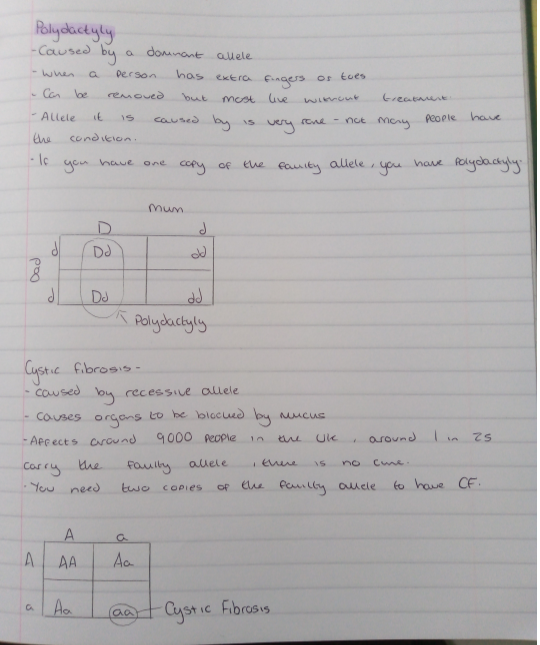 Polydactyly
- Caused by a dominant allele
- When a person has extra fingers or toes
- Can be removed but most live without treatment
- Allele it is caused by is very rare - not many people have
the condition.
- If you have one copy of the faulty allele, you have Polydactyly.
mum
D d
dad
d Dd dd
d Dd dd
Polydactyly
Cystic fibrosis -
- caused by recessive allele
- causes organs to be blocked by mucus
- Affects around 9000 people in the UK, around 1 in 25
carry the faulty allele, there is no cure.
- You need two copies of the faulty allele to have CF.
A a
A AA Aa
a Aa aa Cystic Fibrosis